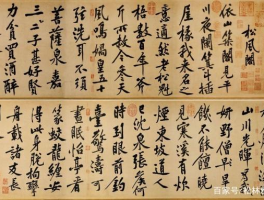 松風閣
依山築閣見平
川夜闌箕斗插
屋椽我來名之
意適然老松魁
梧數百年斧
斤所赦今參天
風鳴媧皇五十
絃洗耳不須
菩薩泉嘉
二三子甚好賢
力貧買酒醉
山川光暉為我
妍野僧旱饑
不能饘曉
見寒溪有炊
煙東坡道人
已沈泉張侯何
時到眼前釣
臺驚濤可
晝眠怡亭看
篆蛟龍纏安
得此身脫拘攣
舟載諸友長
百家号/松林